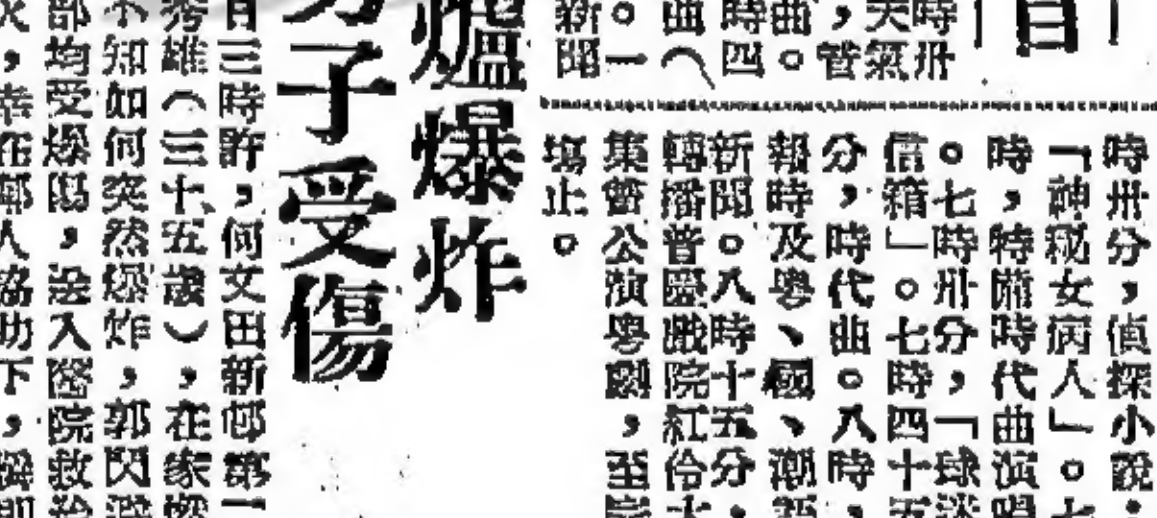 目
時卅
天氣
，管
曲。
時四
曲（
。一
新聞
時卅分，偵探小說：
「神秘女病人」。七
時，特備時代曲演唱
。七時卅分，「球迷
信箱」。七時四十五
分，時代曲。八時，
報時及粵、國、潮語
新聞。八時十五分，
轉播普慶戲院紅伶大
集會公演粵劇，至完
塲止。
爐爆炸
子受傷
三時許，何文田新邨第一
秀雄（三十五歲），在家燃
不知如何突然爆炸，郭閃避
部均受爆傷，送入醫院救治
，幸在鄰人協助下，